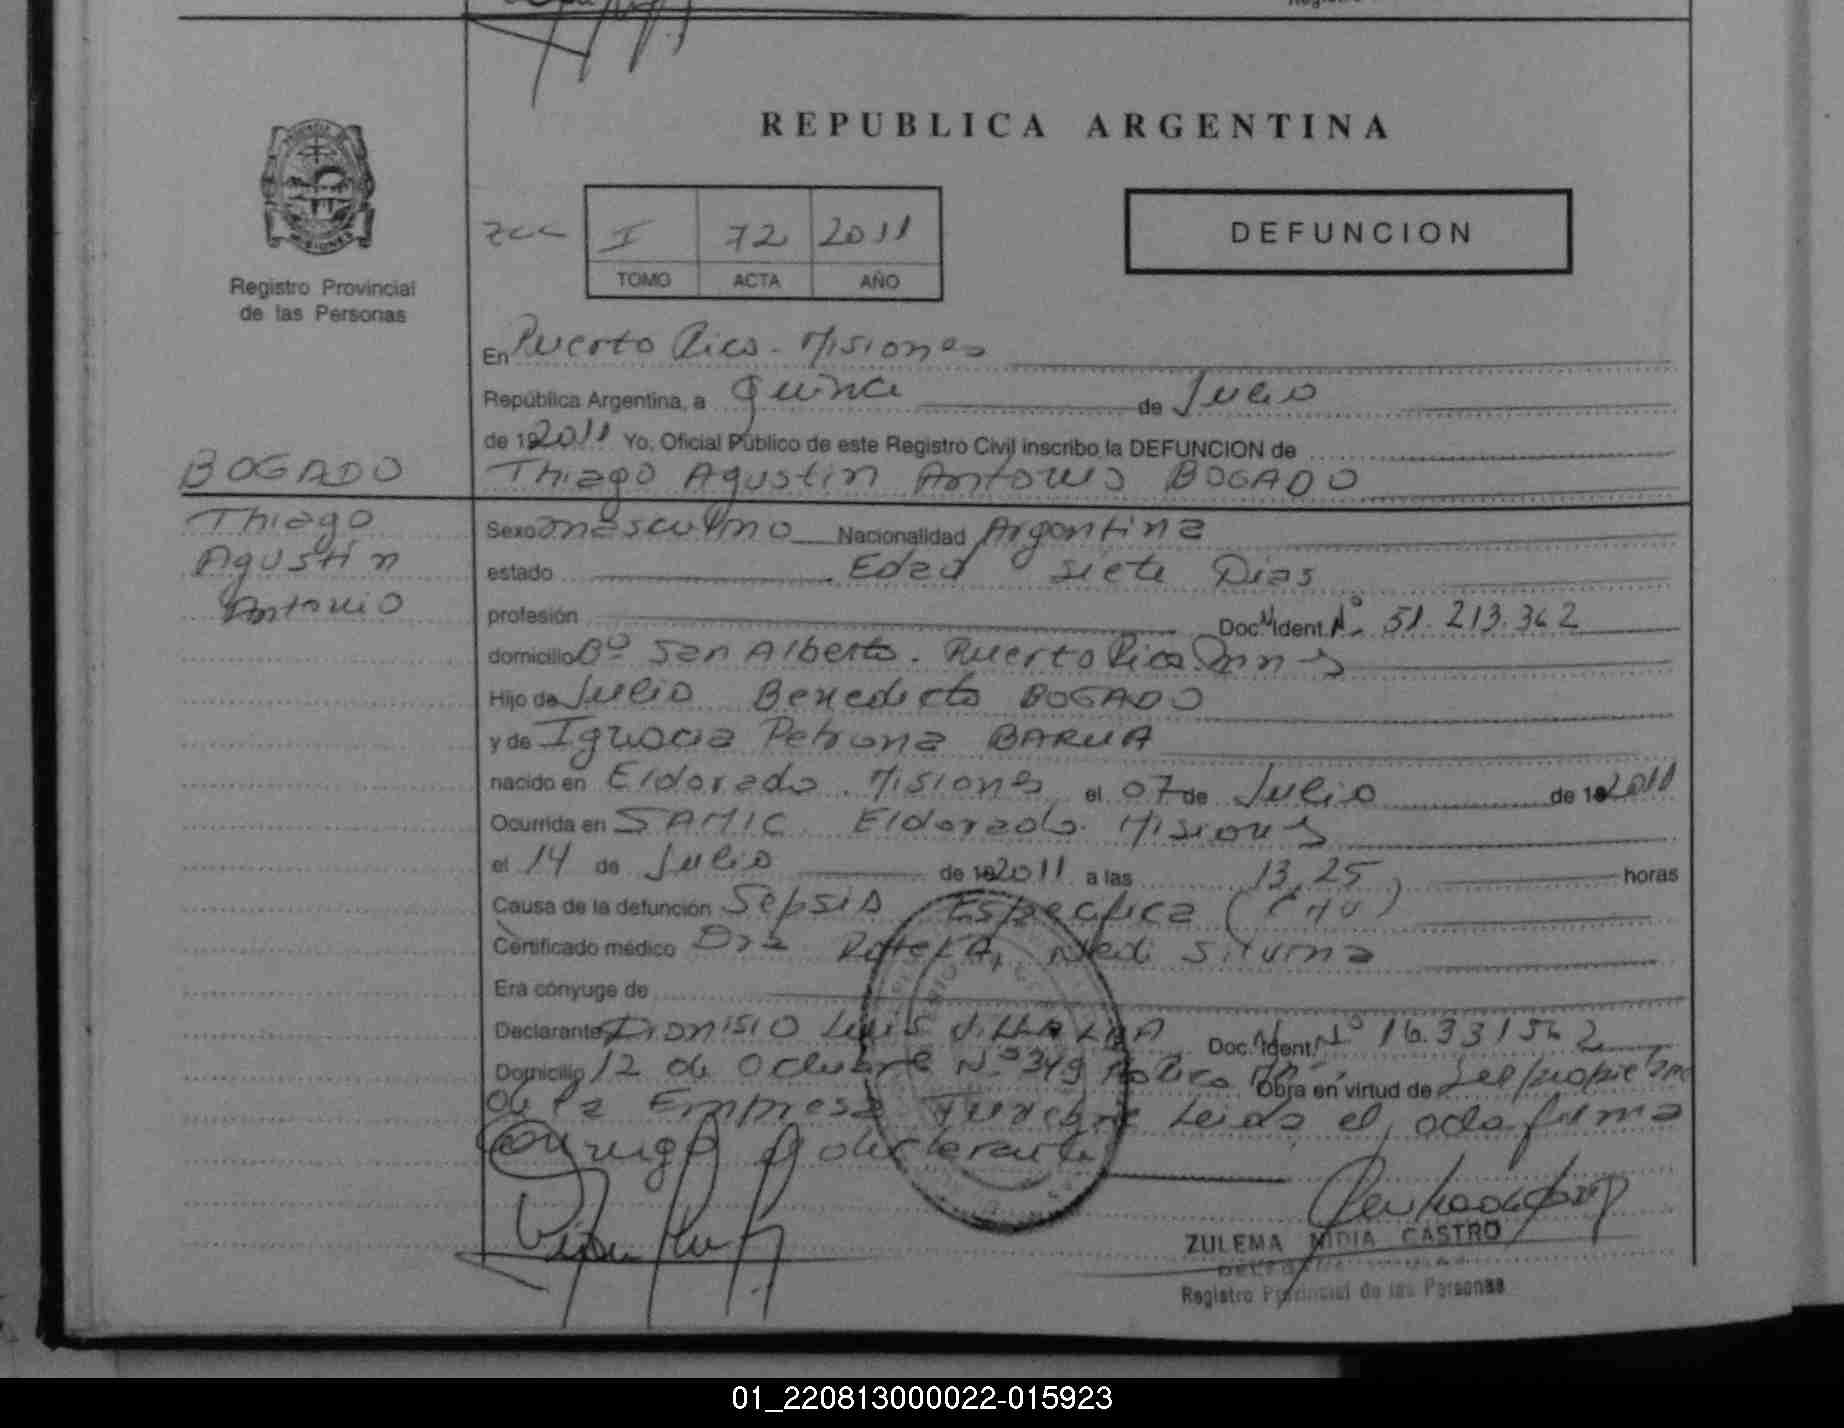 REPUBLICA ARGENTINA
I 72 2011
TOMO ACTA AÑO
DEFUNCION
Registro Provincial
de las Personas
En Puerto Rico - Misiones
República Argentina, a quince de Julio
de 192011 Yo, Oficial Público de este Registro Civil inscribo la DEFUNCION de
BOGADO Thiago Agustin Antonio BOGADO
Thiago
Agustin
Antonio
Sexo masculino Nacionalidad Argentina
estado Edad siete Dias
profesión Doc. Ident. Nº 51.213.362
domicilio Bº San Alberto. Puerto Rico Mnes
Hijo de Julio Benedicto BOGADO
y de Ignacia Petrona BARUA
nacido en Eldorado. Misiones el 07 de Julio de 192011
Ocurrida en SAMIC. Eldorado. Misiones
el 14 de Julio de 192011 a las 13,25 horas
Causa de la defunción Sepsis Especifica
Certificado médico Dra Silvina
Era cónyuge de
Declarante Dionisio Luis VILLALBA Doc. Ident. Nº 16.331562
Domicilio 12 de Octubre Nº 349 Obra en virtud de ser propietario
de la Empresa Funebre Leida el acta firma
conmigo el declarante
ZULEMA NIDIA CASTRO
Registro Provincial de las Personas
01_220813000022-015923